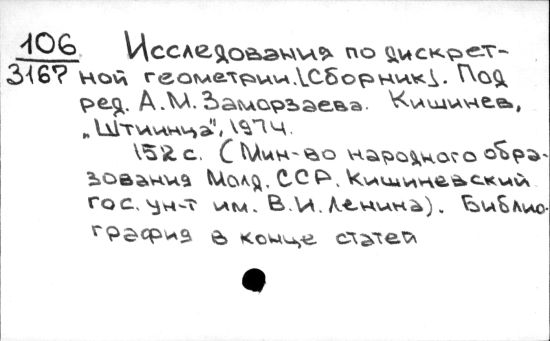 106 Исследования по дискрет-
3167 ной геометрии.[Сборник]. Под
ред. А.М. Заморзаева. Кишинев,
„Штиинца", 1974.
152 с. (Мин-во народного обра-
зования Молд. ССР. Кишиневский
гос. ун-т им. В.И. Ленина). Библио-
графия в конце статей